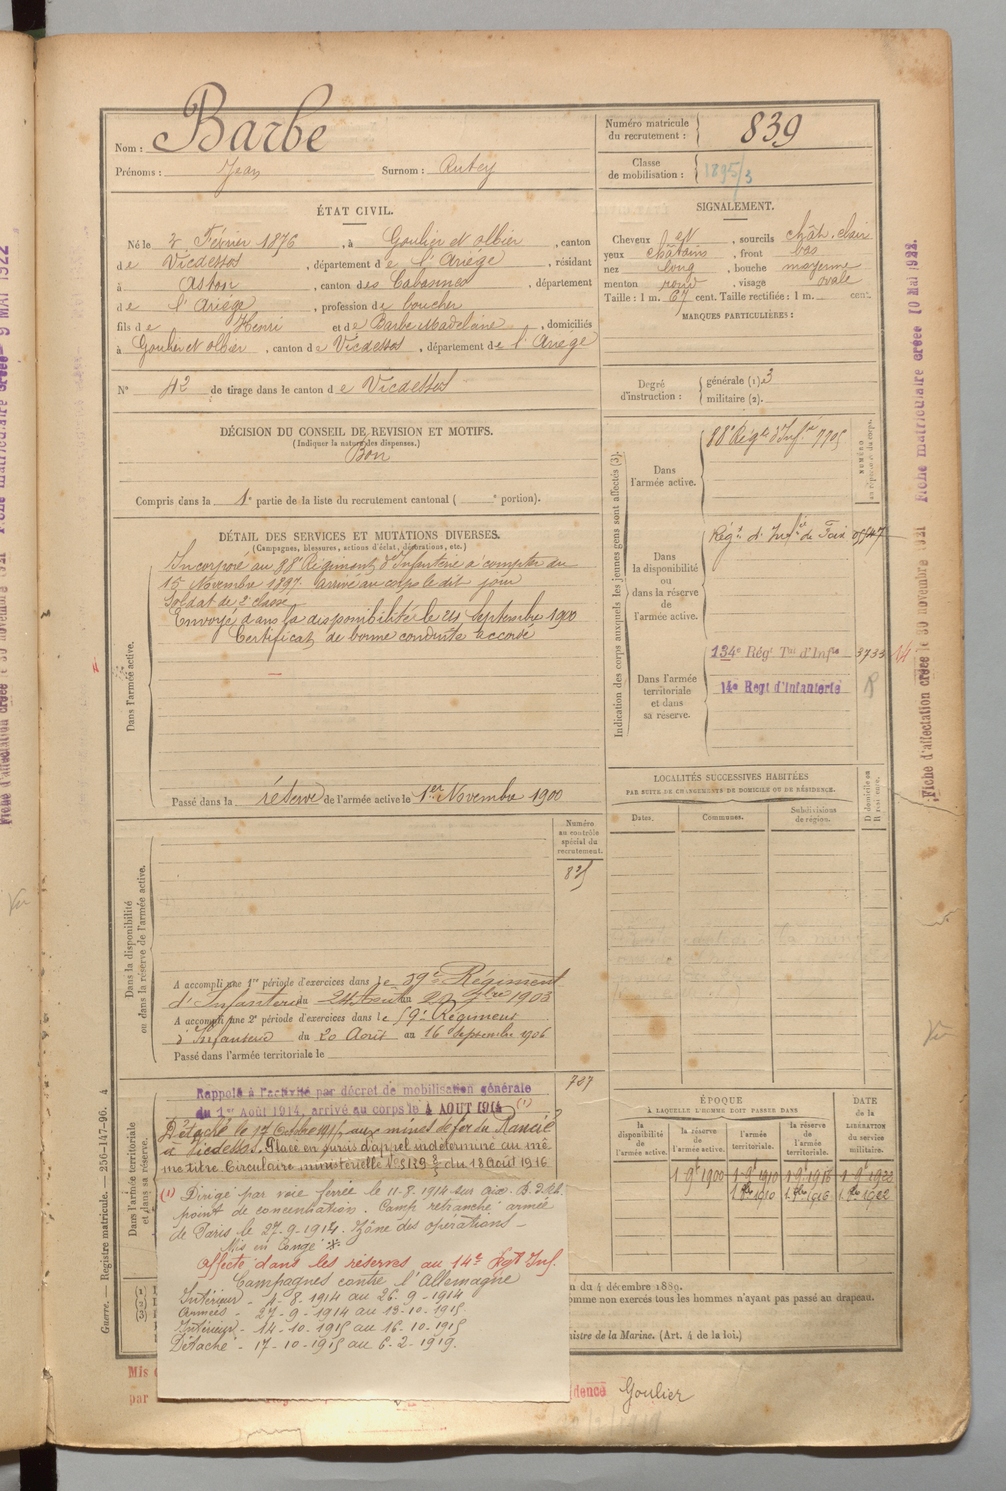 Nom : Barbe
Prénoms : Jean Surnom : Rutey
Numéro matricule du recrutement : 839
Classe de mobilisation : 1895/3
ÉTAT CIVIL.
Né le 2 Février 1876, à Goulier et olbier, canton
de Vicdessos, département de l'Ariège, résidant
à Aston, canton des Cabannes, département
de l'Ariége, profession de boucher
fils de Henri et de Barbe Madelaine, domiciliés
à Goulier et olbier, canton de Vicdessos, département de l'Ariège
N° 42 de tirage dans le canton de Vicdessos
SIGNALEMENT.
Cheveux, sourcils chât. clair
yeux châtains, front bas
nez long, bouche moyenne
menton rond, visage ovale
Taille : 1 m. 67 cent. Taille rectifiée : 1 m. cent.
MARQUES PARTICULIÈRES :
Degré d'instruction : générale (1) 3
militaire (2).
DÉCISION DU CONSEIL DE REVISION ET MOTIFS.
(Indiquer la nature des dispenses.)
Bon
Compris dans la 1e partie de la liste du recrutement cantonal ( e portion).
DÉTAIL DES SERVICES ET MUTATIONS DIVERSES.
(Campagnes, blessures, actions d'éclat, décorations, etc.)
Dans l'armée active.
Incorporé au 88e Régiment d'Infanterie à compter du
15 Novembre 1897. Arrivé au corps le dit jour
Soldat de 2e classe
Envoyé dans la disponibilité le 24 Septembre 1900
Certificat de bonne conduite accordé
Passé dans la réserve de l'armée active le 1er Novembre 1900
Indication des corps auxquels les jeunes gens sont affectés (3).
NUMÉRO
Dans l'armée active.
88e Régt d'Infie 7705
Dans la disponibilité ou dans la réserve de l'armée active.
Régt d'Infie de Foix
Dans l'armée territoriale et dans sa réserve.
134e Régt Tal d'Infie 3733
14e Regt d'Infanterie
LOCALITÉS SUCCESSIVES HABITÉES
PAR SUITE DE CHANGEMENTS DE DOMICILE OU DE RÉSIDENCE.
Dates. Communes. Subdivisions de région.
Dans la disponibilité ou dans la réserve de l'armée active.
Numéro au contrôle spécial du recrutement.
A accompli une 1re période d'exercices dans le 59e Régiment
d'Infanterie du 24 Août au 20 7bre 1903
A accompli une 2e période d'exercices dans le 59e Régiment
d'Infanterie du 20 Août au 16 Septembre 1906
Passé dans l'armée territoriale le
787
Dans l'armée territoriale et dans sa réserve.
Rappelé à l'activité par décret de mobilisation générale
du 1er Août 1914, arrivé au corps le 4 AOUT 1914 (1)
Détaché le 17 Octobre 1915 aux mines de fer du Rancié
à Vicdessos. Placé en sursis d'appel indéterminé au mê-
me titre. Circulaire ministérielle du 18 Août 1916.
(1) Dirigé par voie ferrée le 11-8-1914 sur
point de concentration. Camp retranché armée
de Paris le 27-9-1914. Zône des opérations
Mis en Congé
Affecté dans les réserves au 14e Rgt Inf.
Campagnes contre l'Allemagne
Intérieur - 4-8-1914 au 26-9-1914
Armées - 27-9-1914 au 13-10-1915
Intérieur - 14-10-1915 au 16-10-1915
Détaché - 17-10-1915 au 6-2-1919.
ÉPOQUE
À LAQUELLE L'HOMME DOIT PASSER DANS
DATE de la LIBÉRATION du service militaire.
la disponibilité de l'armée active. la réserve de l'armée active. l'armée territoriale. la réserve de l'armée territoriale.
1 9bre 1900 1 9bre 1910 1 9bre 1916 1 9bre 1922
1 8bre 1910 1 8bre 1916 1 8bre 1922
n du 4 décembre 1889.
omme non exercés tous les hommes n'ayant pas passé au drapeau.
nistre de la Marine. (Art. 4 de la loi.)
Mis
par
dence Goulier
Guerre. — Registre matricule. — 256-147-96. 4
Fiche d'affectation créée le 30 novembre 1921 Fiche matriculaire créée 10 Mai 1922.